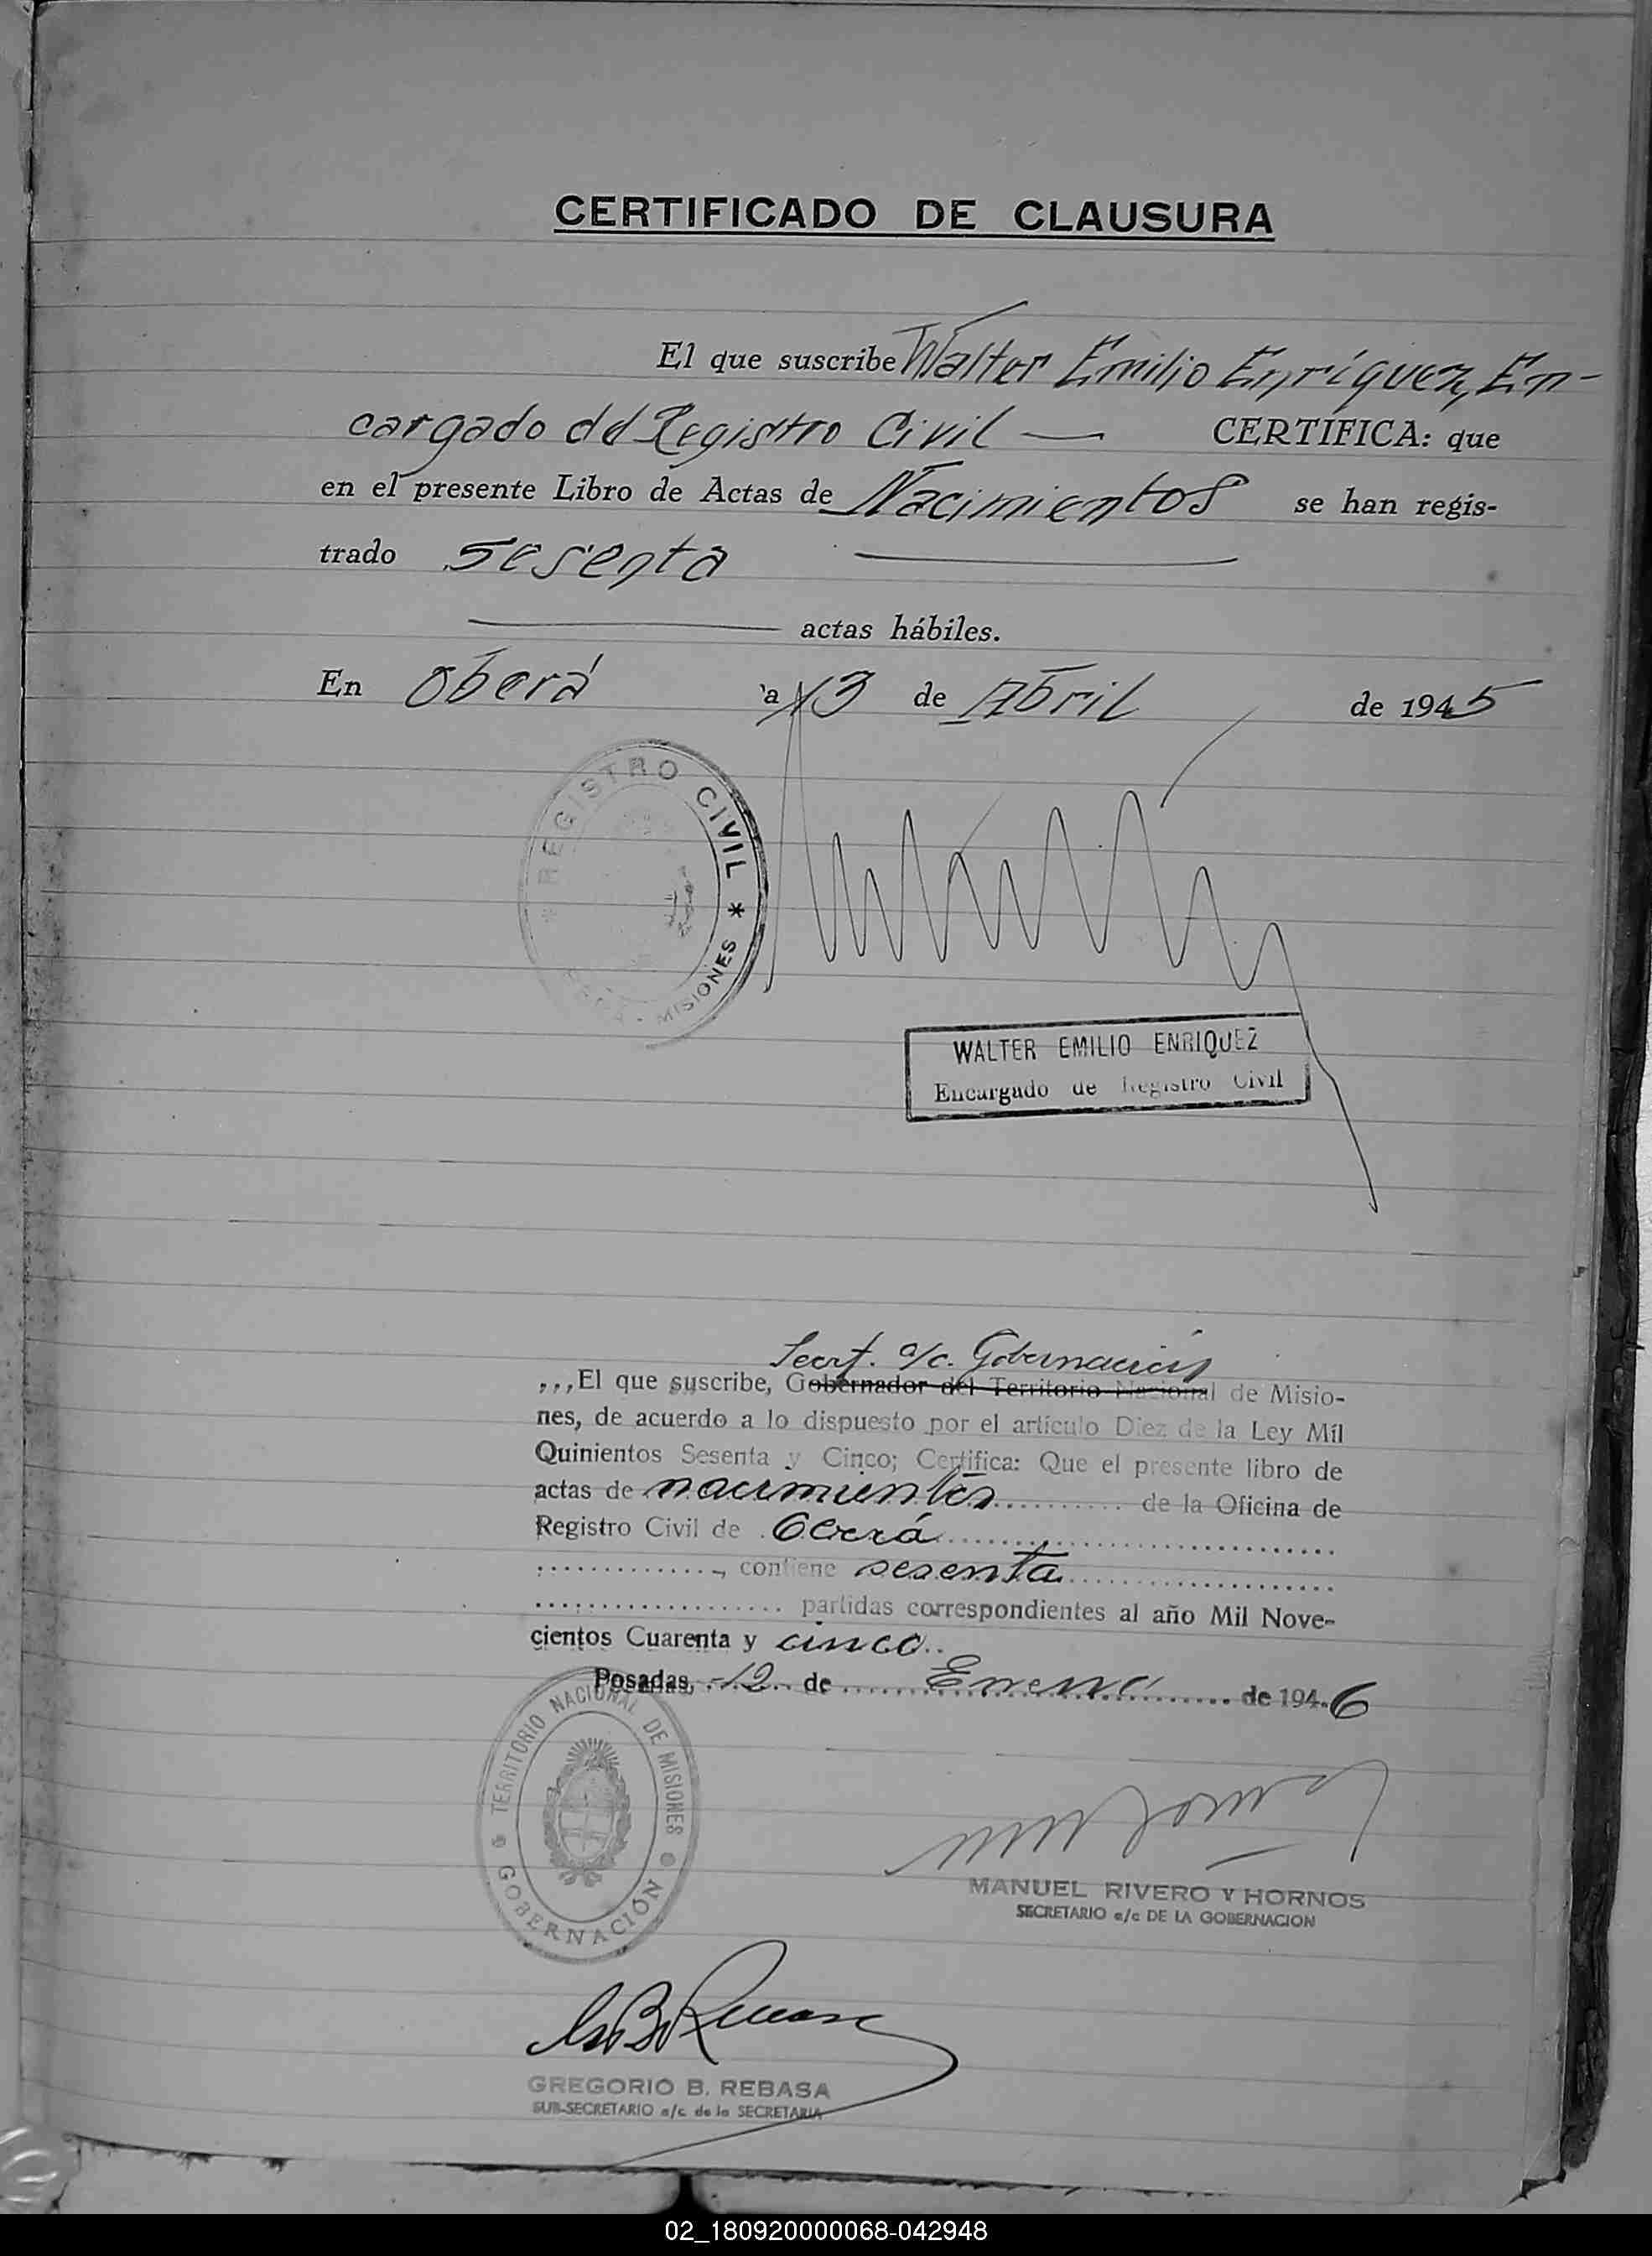 CERTIFICADO DE CLAUSURA
El que suscribe Walter Emilio Enríquez, En-
cargado del Registro Civil — CERTIFICA: que
en el presente Libro de Actas de Nacimientos se han regis-
trado sesenta
actas hábiles.
En Oberá a 13 de Abril de 1945
REGISTRO CIVIL * MISIONES *
WALTER EMILIO ENRIQUEZ
Encargado de Registro Civil
Secrt. a/c. Gobernación
,,,El que suscribe, Gobernador del Territorio Nacional de Misio-
nes, de acuerdo a lo dispuesto por el artículo Diez de la Ley Mil
Quinientos Sesenta y Cinco; Certifica: Que el presente libro de
actas de nacimientos.......... de la Oficina de
Registro Civil de Oberá..............................
.............., contiene sesenta.....................
................... partidas correspondientes al año Mil Nove-
cientos Cuarenta y cinco..
Posadas, 12 de Enero de 1946
TERRITORIO NACIONAL DE MISIONES
GOBERNACIÓN
MANUEL RIVERO Y HORNOS
SECRETARIO a/c DE LA GOBERNACION
GREGORIO B. REBASA
SUB-SECRETARIO a/c de la SECRETARIA
02_180920000068-042948